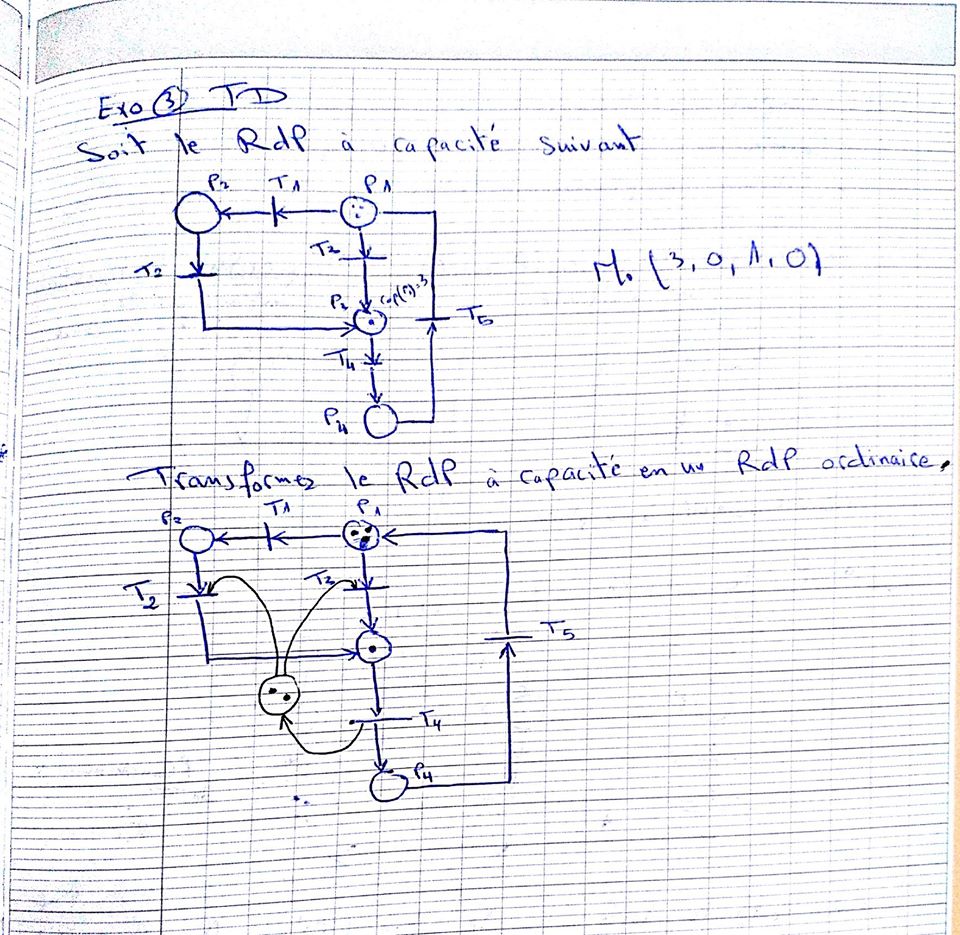 Exo ③ TD
Soit le RdP à capacité suivant
P2 T1 P1
T2 T2
M0 (3, 0, 1, 0)
P2 cap(P)=3
T5
T4
P4
Transformez le RdP à capacité en un RdP ordinaire.
P2 T1 P1
T2 T2
T5
T4
P4